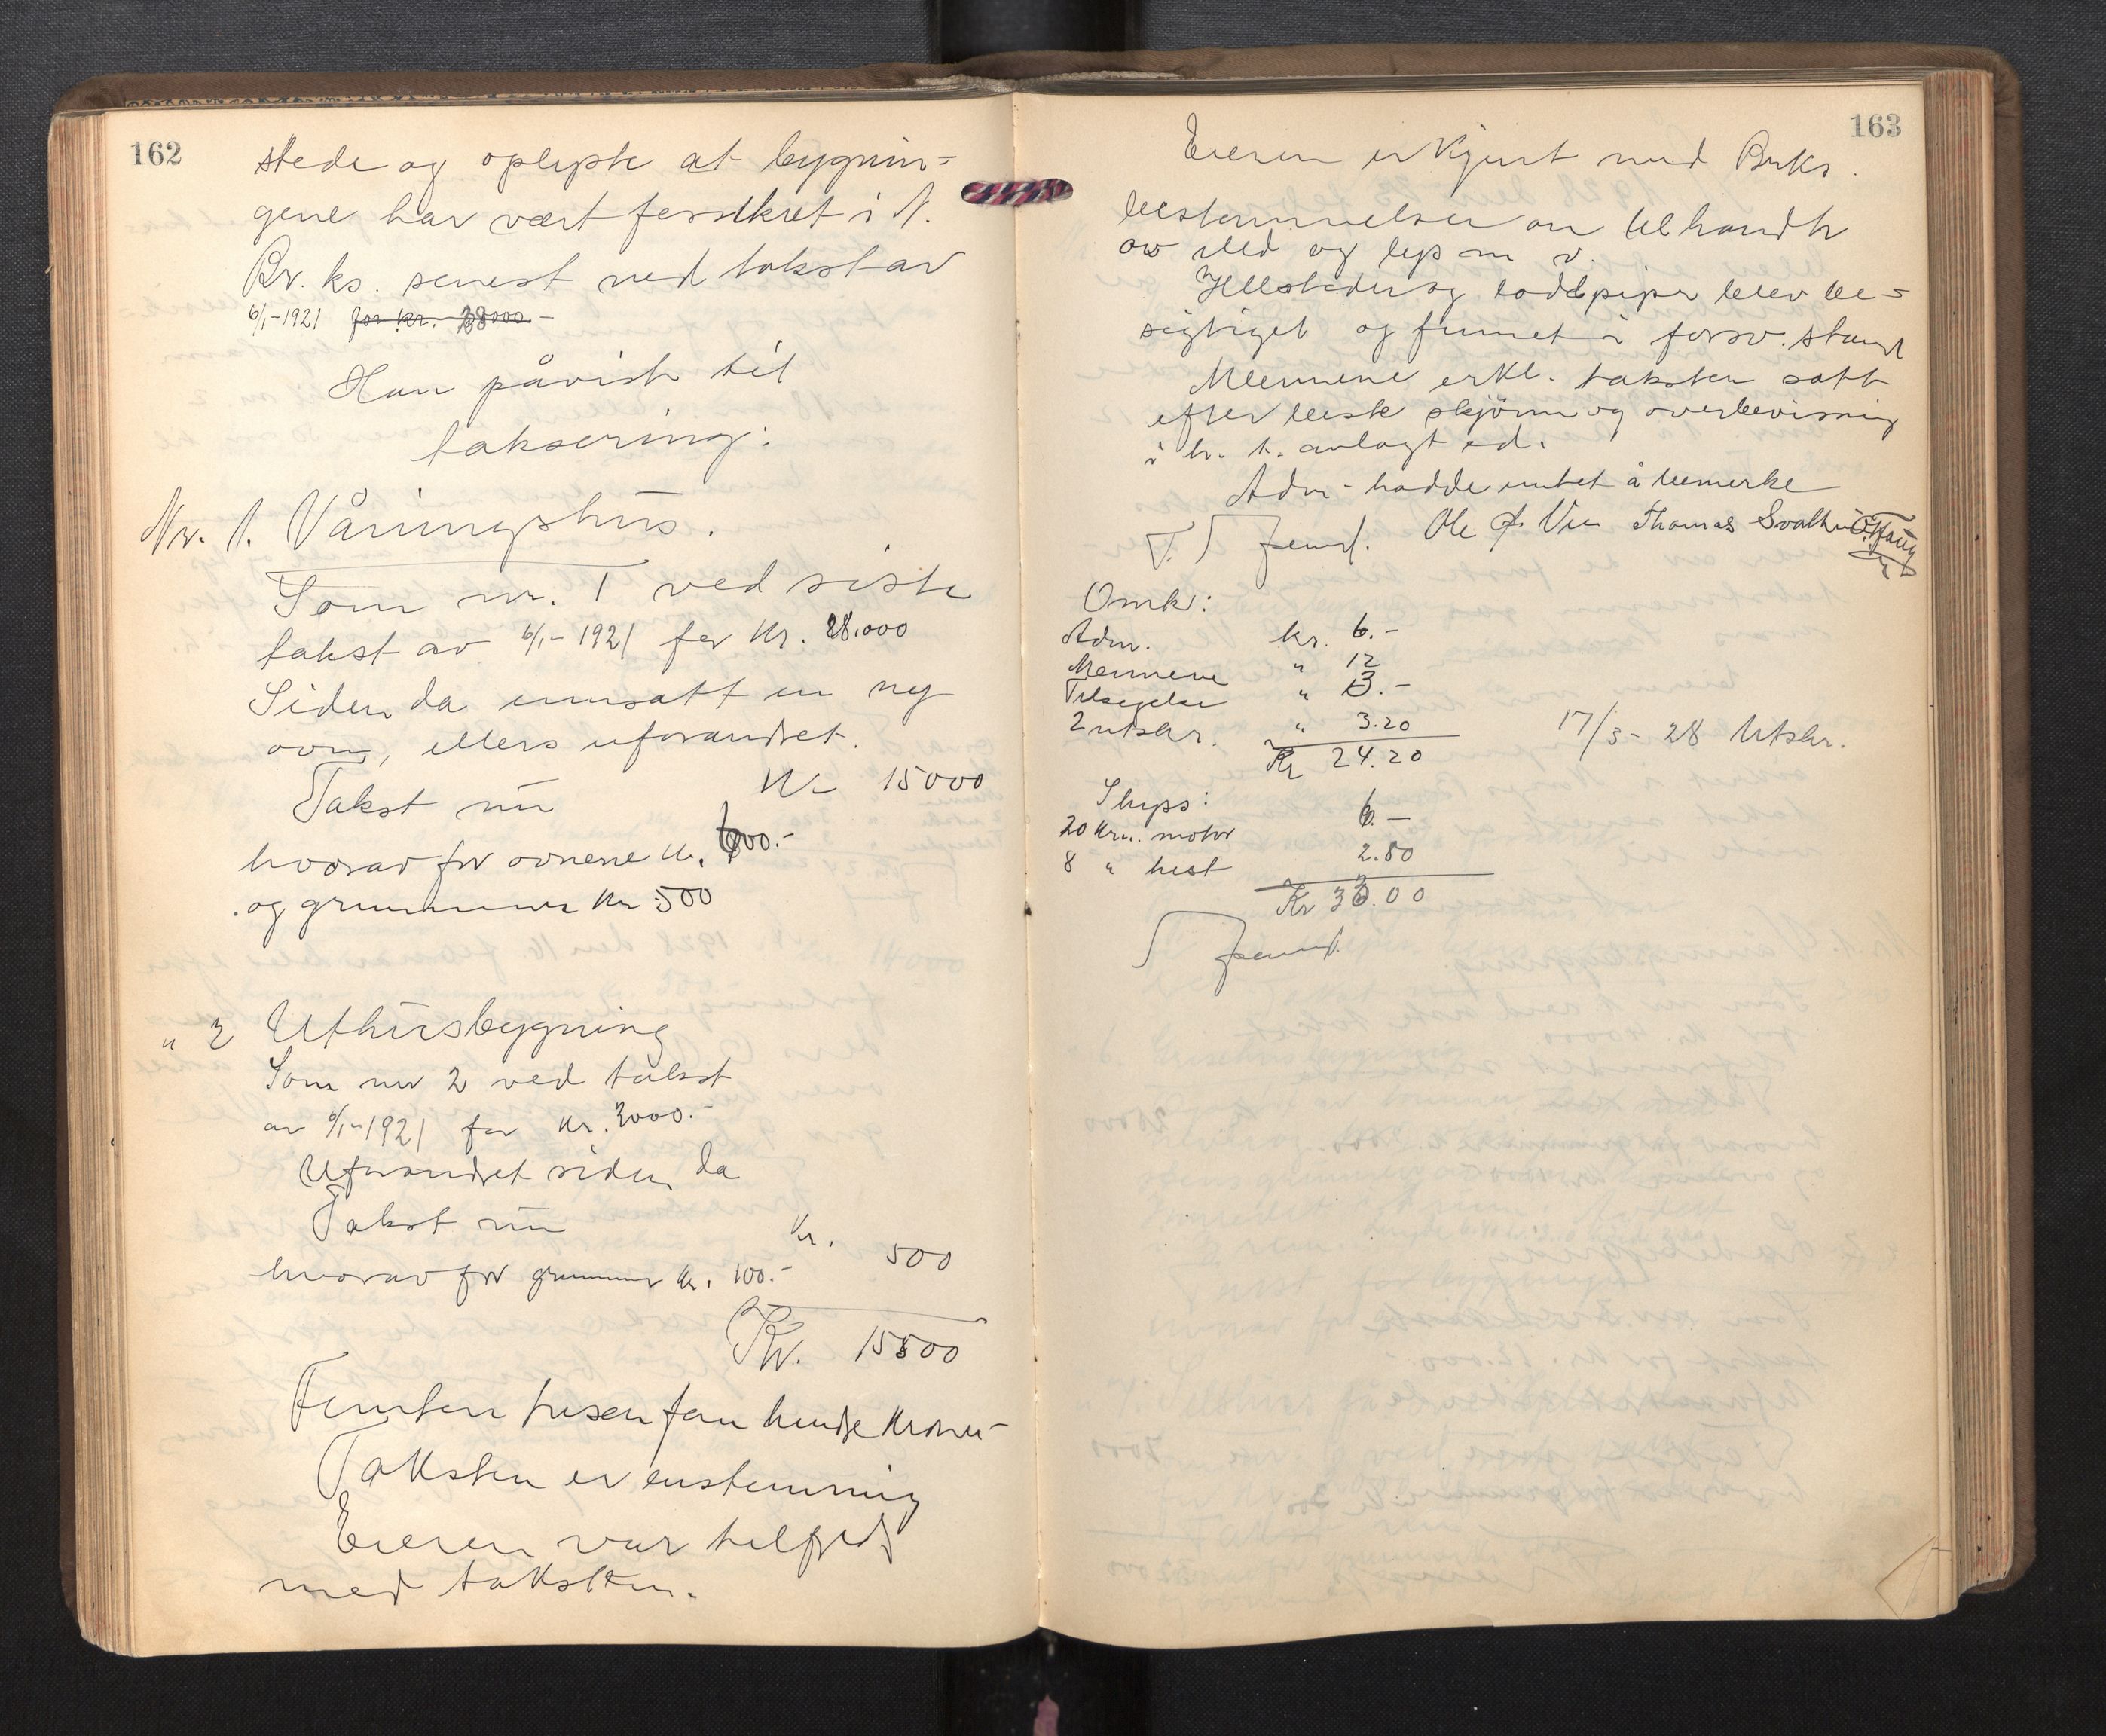 162
stede og oplyste at bygnin=
gene har vært forsikret i N.
Br. ks. senest ved takst av
6/1-1921 for kr. 28000.-
Han påviste til
taksering:
Nr. 1. Våningshus.
Som nr. 1 ved siste
takst av 6/1-1921 for kr. 28.000
Siden da innsatt en ny
ovn, ellers uforandret.
Takst nu Kr 15000
hvorav for ovnene kr. 600.-
og grunnmur kr 500
" 2 Uthusbygning
Som nr 2 ved takst
av 6/1-1921 for kr. 3000.-
Uforandret siden da
Takst nu Kr. 500
hvorav for grunnmur kr. 100.-
Kr. 15500
Femten tusen fem hundre kroner
Taksten er enstemmig
Eieren var tilfreds
med taksten.
163
Eieren er kjent med Brks.
bestemmelser om tilhandh
av ild og lys m v.
Ildsteder og loddpiper blev be=
sigtiget og funnet i forsv. stand
Mennene erkl. taksten satt
efter beste skjønn og overbevisning
i h. t. avlagt ed.
Adm- hadde intet å bemerke
Ole J. Vee Thomas
Omk:
Adm. kr. 6.-
Mennene " 12
Tilsigelse " 3.-
2 utskr. " 3.20
Kr 24.20
17/3-28 Utskr.
Skyss:
20 km. motor 6.-
8 " hest 2.80
Kr 33.00